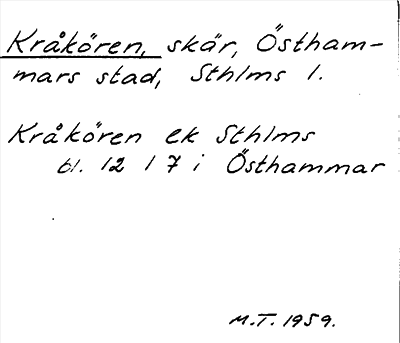 Kråkören, skär, Östham-
mars stad, Sthlms l.
Kråkören ek Sthlms
bl. 12 1 7 i Östhammar
M.T. 1959.